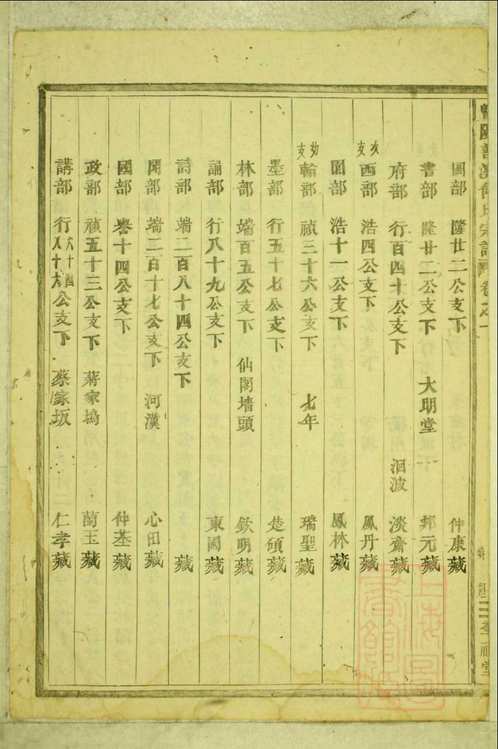 圖部 隆廿二公支下 仲康藏
書部 隆廿二公支下 大明堂 邦元藏
府部 行百四十公支下 洄波 淡齋藏
西部 浩四公支下 鳳丹藏
園部 浩十一公支下 鳳林藏
翰部 禎三十六公支下 七年 瑞聖藏
墨部 行五十七公支下 楚碩藏
林部 端百五公支下 仙閣墻頭 欽明藏
誦部 行八十九公支下 東國藏
詩部 端二百八十四公支下 藏
聞部 端二百十七公支下 河漢 心田藏
國部 榮十四公支下 仲基藏
政部 禎五十三公支下 蔣家塢 蘭玉藏
講部 行八十六公支下 蔡家坂 仁孝藏